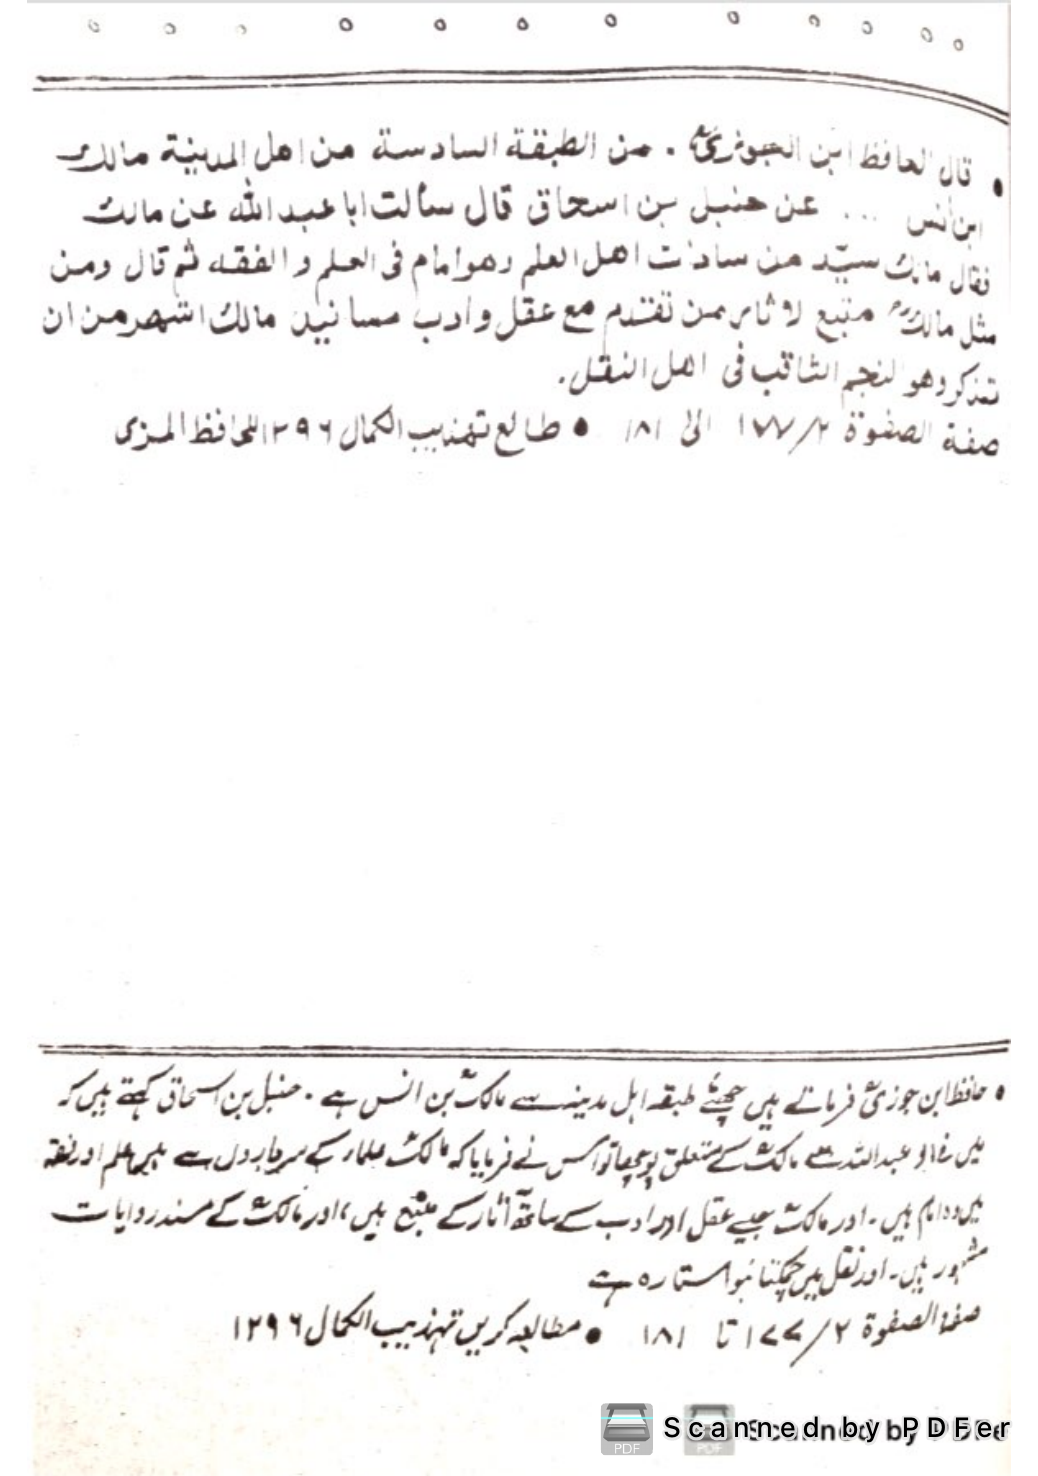 • قال الحافظ ابن الجوزیؒ . من الطبقة السادسة من اهل المدينة مالك
ابن انس ... عن حنبل بن اسحاق قال سألت ابا عبد الله عن مالك
فقال مالك سيّد من سادات اهل العلم وهو امام فى العلم و الفقه ثم قال ومن
مثل مالكؒ متبع لاثار من تقدم مع عقل و ادب مسانيد مالك اشهر من ان
تذكر وهو النجم الثاقب فى اهل النقل.
صفة الصفوة ۲/۱۷۷ الى ۱۸۱ • طالع تهذيب الكمال ۱۲۹۶ للحافظ المزى
• حافظ ابن جوزیؒ فرماتے ہیں چھٹے طبقہ اہل مدینہ سے مالکؒ بن انس ہے . حنبل بن اسحاق کہتے ہیں کہ
میں نے ابو عبداللہ سے مالکؒ کے متعلق پوچھا تو اس نے فرمایا کہ مالکؒ علماء کے سرداروں سے ہیں علم اور فقہ
میں وہ امام ہیں۔ اور مالکؒ جیسے عقل اور ادب کے ساتھ آثار کے متبع ہیں، اور مالکؒ کے مسند روایات
مشہور ہیں۔ اور نقل میں چمکتا ہوا ستارہ ہے
صفۃ الصفوۃ ۲/۱۷۷ تا ۱۸۱ • مطالعہ کریں تہذیب الکمال ۱۲۹۶
Scanned by PDFer
Scanned by PDFe